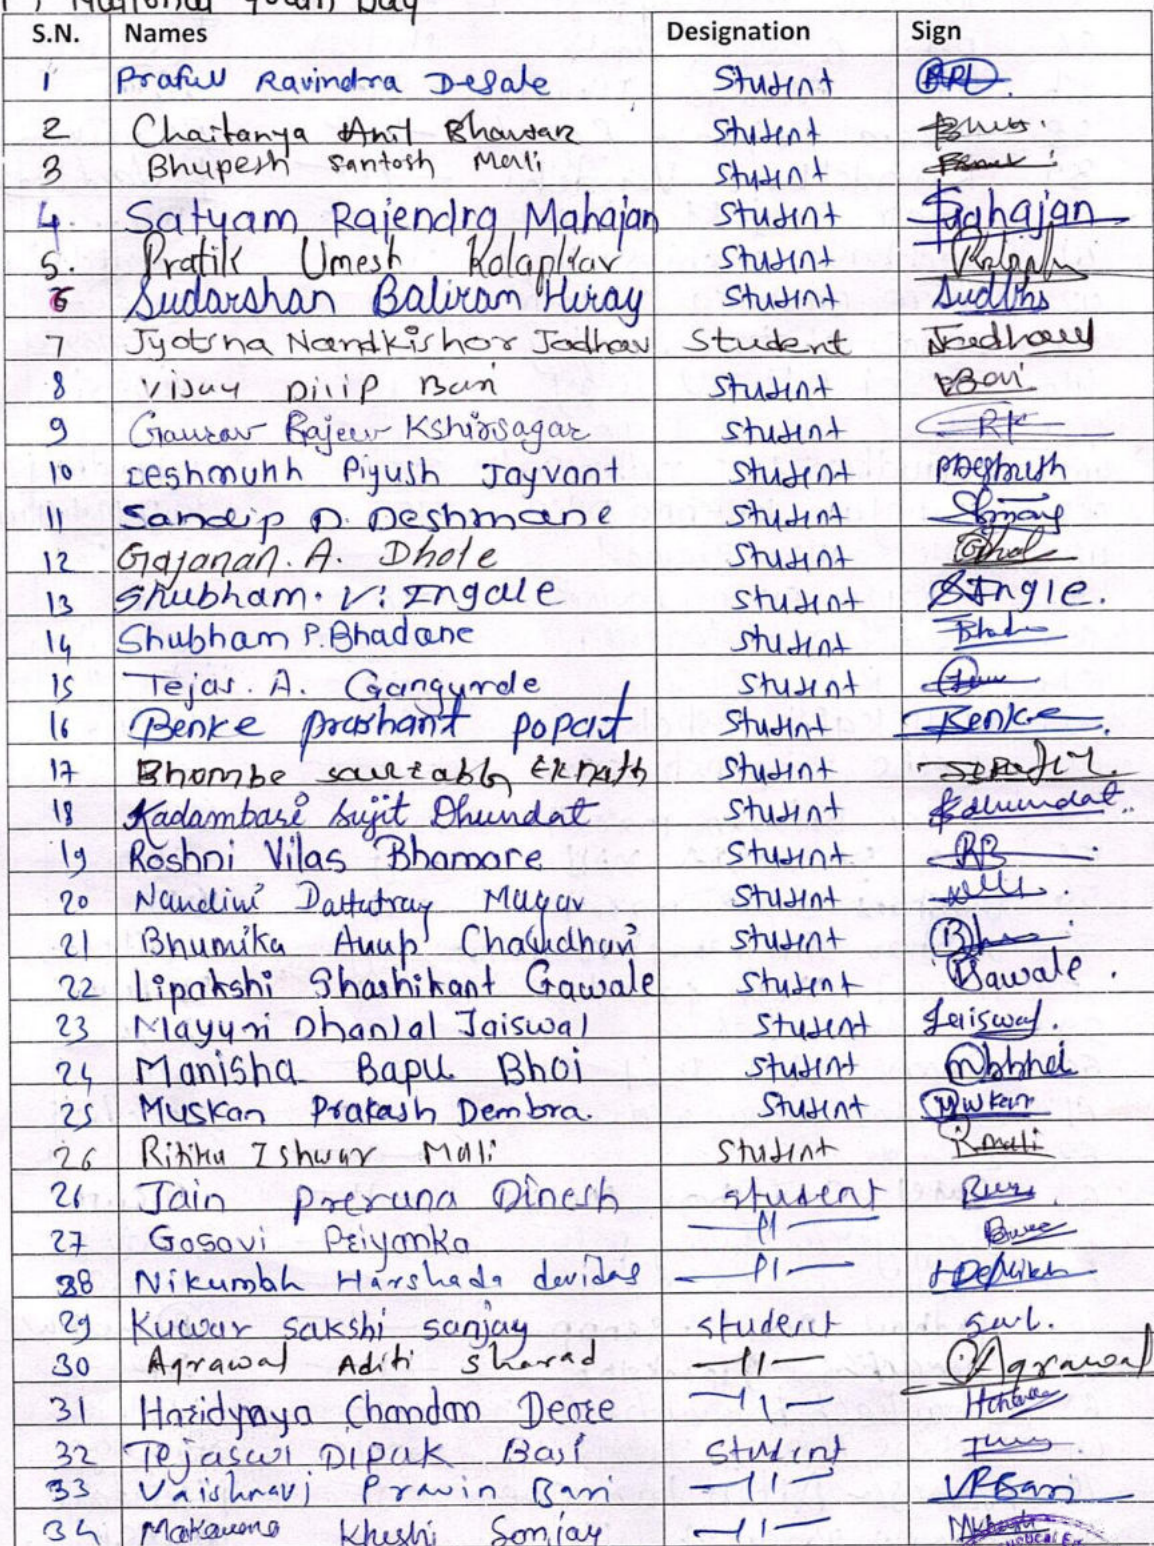 National Youth Day
S.N. Names Designation Sign
1 Prafull Ravindra Desale Student
2 Chaitanya Anil Bhavsar Student
3 Bhupesh Santosh Mali Student
4. Satyam Rajendra Mahajan Student Mahajan
5. Pratik Umesh Kolapkar Student
6 Sudarshan Baliram Hiray Student
7 Jyotsna Nandkishor Jadhav Student Jadhav
8 Vijay Dilip Bari Student Bari
9 Gaurav Rajeev Kshirsagar Student RK
10 Deshmukh Piyush Jayvant Student
11 Sandip D. Deshmane Student
12 Gajanan. A. Dhole Student
13 Shubham. V. Ingale Student SIngle.
14 Shubham P. Bhadane Student
15 Tejas. A. Gangurde Student
16 Benke prashant popat Student Benke
17 Bhombe saurabh Eknath Student
18 Kadambari Sujit Dhundat Student Kdhundat
19 Roshni Vilas Bhamare Student RB
20 Nandini Dattatray Magar Student
21 Bhumika Anup Chaudhari Student
22 Lipakshi Shashikant Gawale Student Gawale.
23 Mayuri Dhanlal Jaiswal Student Jaiswal.
24 Manisha Bapu Bhoi Student
25 Muskan Prakash Dembra. Student Muskan
26 Ritika Ishwar Mali Student Rmali
26 Jain prerana Dinesh student
27 Gosavi Priyanka —11—
38 Nikumbh Harshada devidas —11—
29 Kuwar sakshi sanjay student
30 Agrawal Aditi Sharad —11— Agrawal
31 Haridnyya Chandan Deore —11—
32 Tejaswi Dipak Bari Student
33 Vaishnavi Pravin Bari —11— VPBari
34 Khushi Sanjay —11—